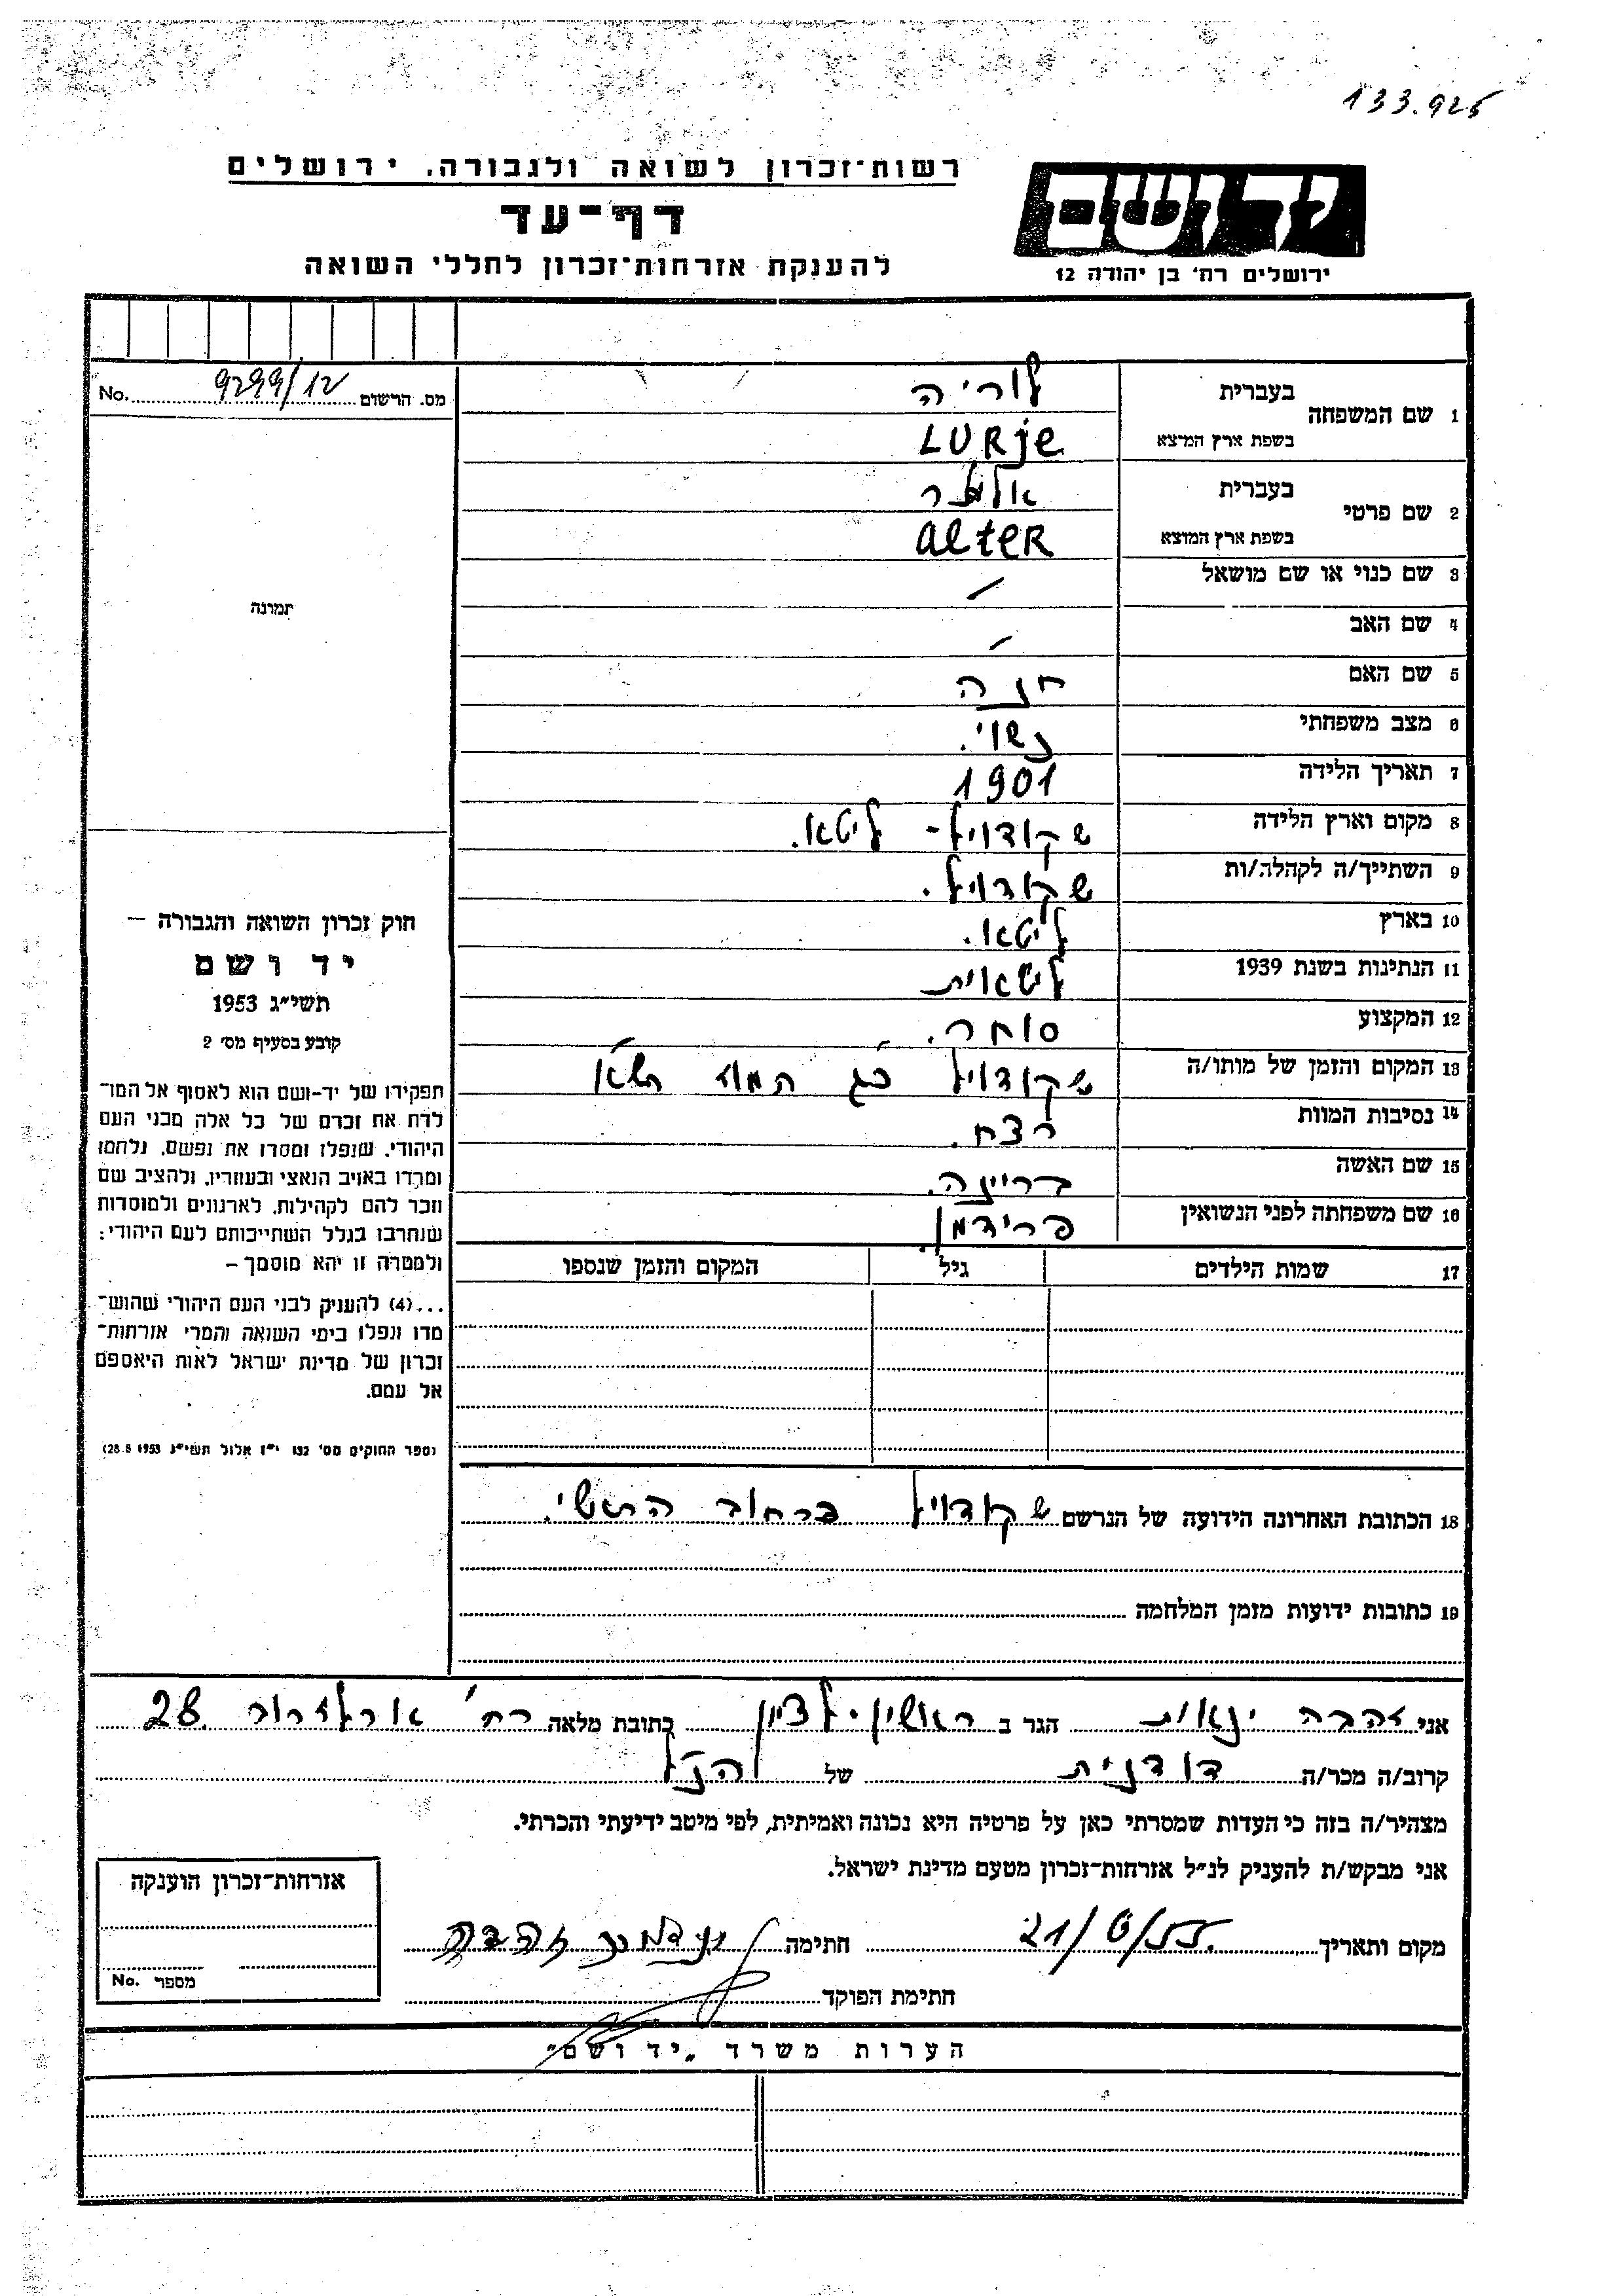 133.925
רשות־זכרון לשואה ולגבורה, ירושלים
דף־עד
להענקת אזרחות־זכרון לחללי השואה
יד ושם
ירושלים רח' בן יהודה 12
מס. הרשום 9299/12 No.
1 שם המשפחה בעברית לוריה
בשפת ארץ המוצא LURje
2 שם פרטי בעברית אלטר
בשפת ארץ המוצא alteR
3 שם כנוי או שם מושאל /
4 שם האב /
5 שם האם חנה
6 מצב משפחתי נשוי.
7 תאריך הלידה 1901
8 מקום וארץ הלידה שקודויל - ליטא.
9 השתייך/ה לקהלה/ות שקודויל.
10 בארץ ליטא.
11 הנתינות בשנת 1939 ליטאית
12 המקצוע סוחר.
13 המקום והזמן של מותו/ה שקודויל כג תמוז תש״א
14 נסיבות המוות רצח.
15 שם האשה בריינה.
16 שם משפחתה לפני הנשואין פרידמן.
17 שמות הילדים גיל המקום והזמן שנספו
תמונה
חוק זכרון השואה והגבורה —
יד ושם
תשי״ג 1953
קובע בסעיף מס' 2
תפקידו של יד-ושם הוא לאסוף אל המו־
לדת את זכרם של כל אלה מבני העם
היהודי, שנפלו ומסרו את נפשם, נלחמו
ומרדו באויב הנאצי ובעוזריו, ולהציב שם
וזכר להם לקהילות, לארגונים ולמוסדות
שנחרבו בגלל השתייכותם לעם היהודי;
ולמטרה זו יהא מוסמך –
...(4) להעניק לבני העם היהודי שהוש־
מדו ונפלו בימי השואה והמרי אזרחות־
זכרון של מדינת ישראל לאות היאספם
אל עמם.
(ספר החוקים מס' 132 י״ז אלול תשי״ג 28.8 1953)
18 הכתובת האחרונה הידועה של הנרשם שקודויל ברחוב הראשי.
19 כתובות ידועות מזמן המלחמה
אני זהבה ינאות הגר ב ראשון-לציון כתובת מלאה רח' ארלוזרוב 28.
קרוב/ה מכר/ה דודנית של הנ״ל
מצהיר/ה בזה כי העדות שמסרתי כאן על פרטיה היא נכונה ואמיתית, לפי מיטב ידיעתי והכרתי.
אני מבקש/ת להעניק לנ״ל אזרחות־זכרון מטעם מדינת ישראל.
מקום ותאריך 21/6/55. חתימה זהבה
חתימת הפוקד
אזרחות־זכרון הוענקה
מספר No.
הערות משרד „יד ושם״